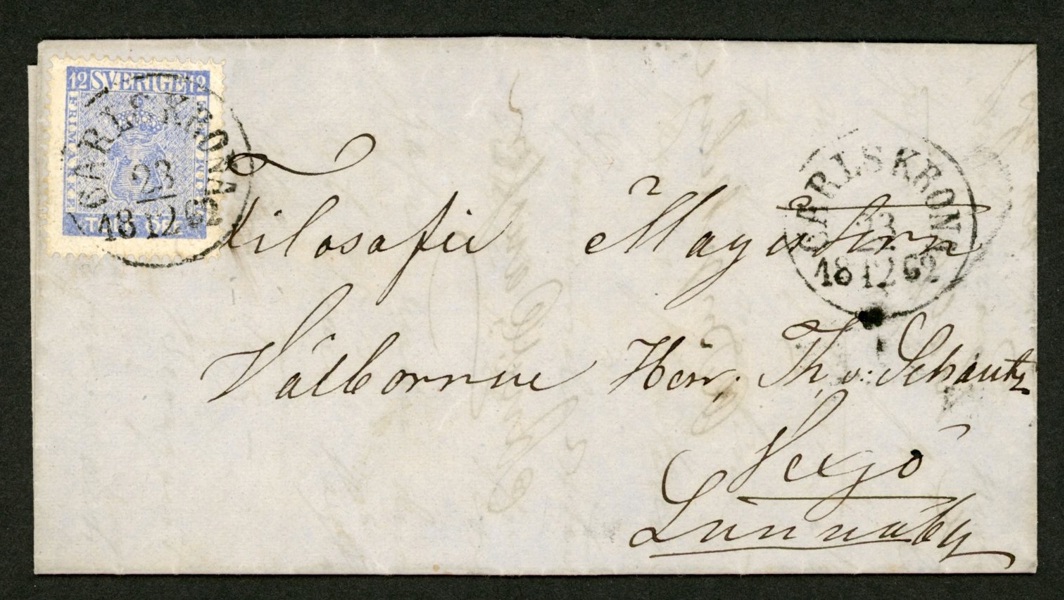 12 SVERIGE 12
FRIMÄRKE
CARLSKRONA
23
18 12 62
CARLSKRONA
23
18 12 62
Filosofie Magistern
Välborne Herr. Th. v: Schantz
Vexjö